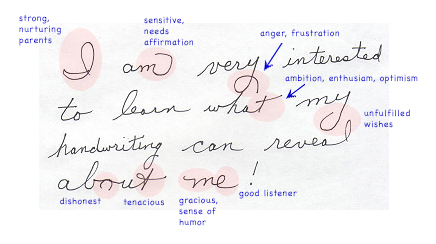 strong,
nurturing
parents
sensitive,
needs
affirmation
anger, frustration
I am very interested
ambition, enthusism, optimism
to learn what my
unfulfilled
wishes
handwriting can reveal
about me!
dishonest
tenacious
gracious,
sense of
humor
good listener